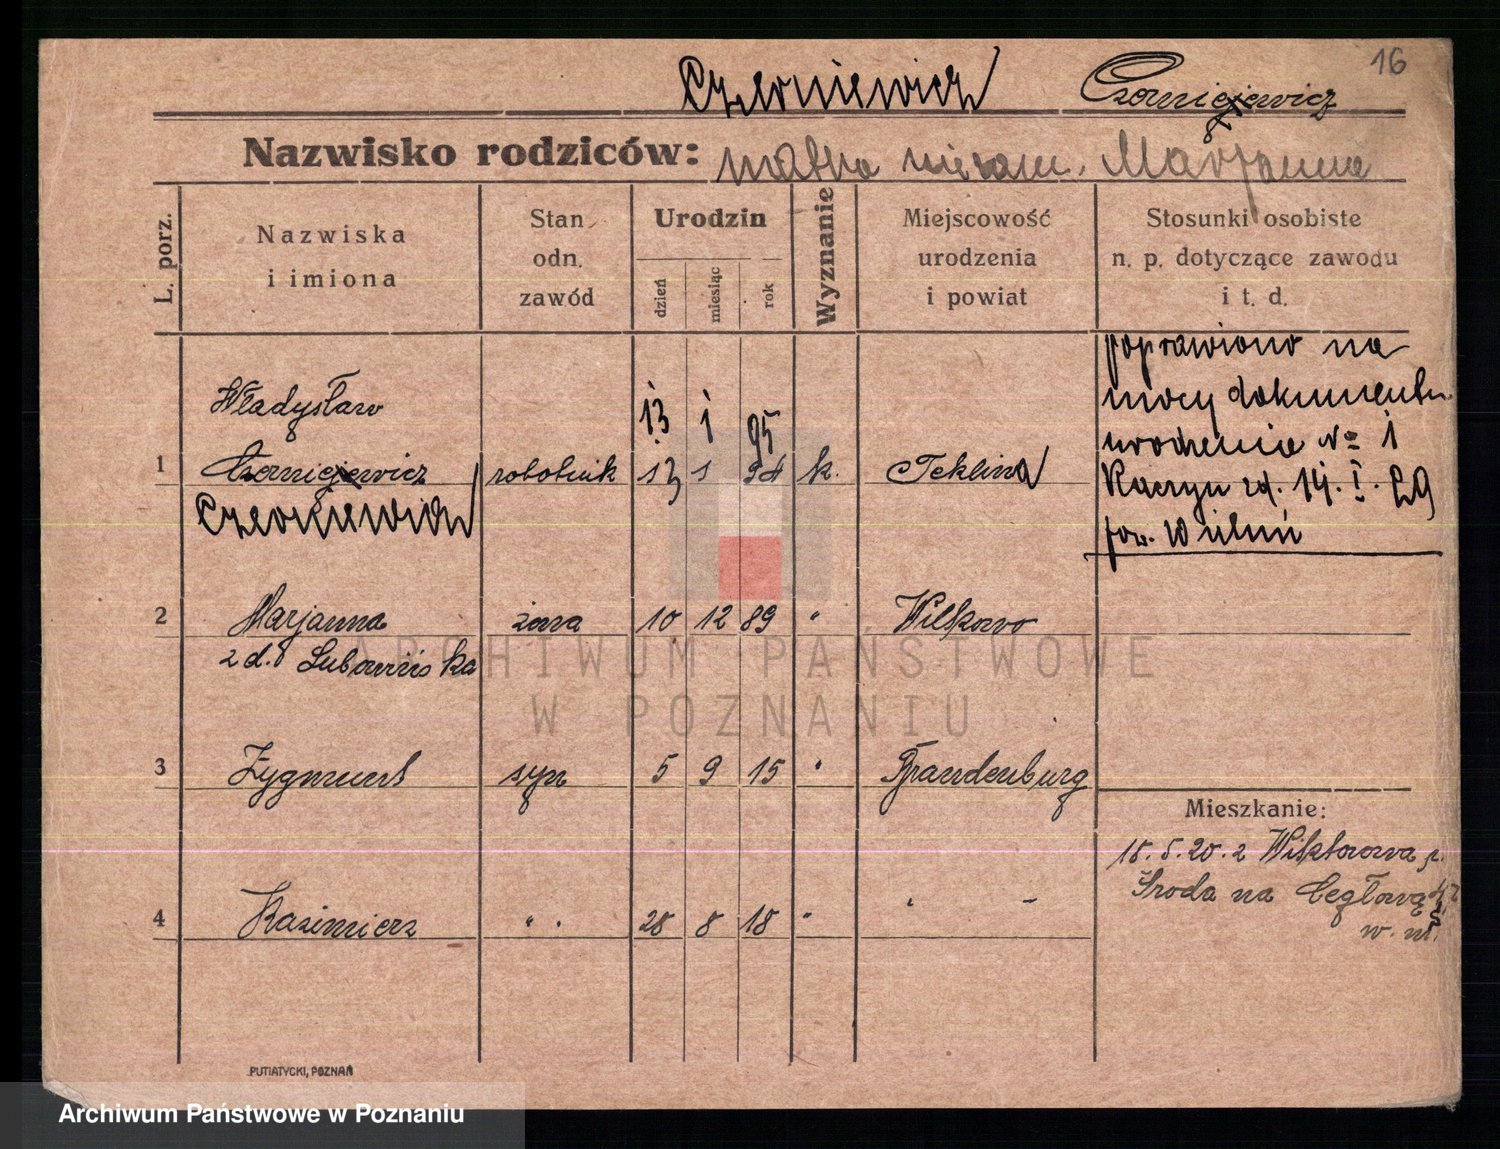 16
Czerniewicz Czerniejewicz
Nazwisko rodziców: matka niezam. Marjanna
L. porz.
Nazwiska
i imiona
Stan
odn.
zawód
Urodzin
dzień
miesiąc
rok
Wyznanie
Miejscowość
urodzenia
i powiat
Stosunki osobiste
n. p. dotyczące zawodu
i t. d.
poprawiono na
mocy dokumentu
urodzenia No 1
14. I. 29
pow.
Władysław
13 1 95
1 Czerniejewicz robotnik 13 1 94 k. Teklina
Czerniewicz
2 Marjanna żona 10 12 89 " Wilkowo
z d.
3 Zygmunt syn 5 9 15 " Brandenburg
Mieszkanie:
18.5.20. z Wiktorowa p.
Środa na Cegłową
w. m.
4 Kazimierz " . 28 8 18 " " -
PUTIATYCKI, POZNAŃ
ARCHIWUM PAŃSTWOWE
W POZNANIU
Archiwum Państwowe w Poznaniu